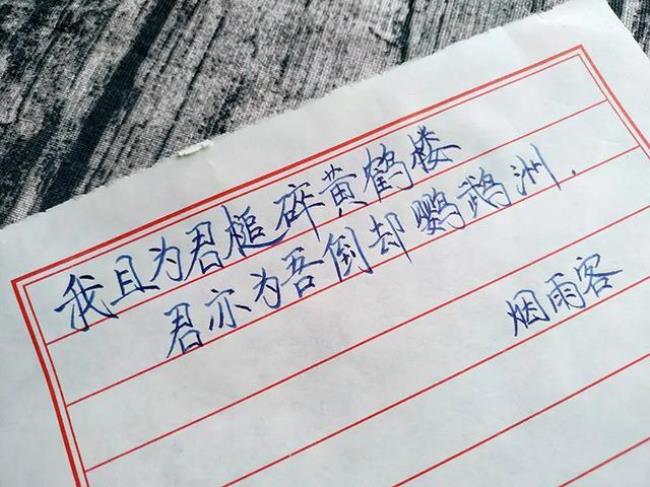 我且为君槌碎黄鹤楼
君亦为吾倒却鹦鹉洲.
烟雨客